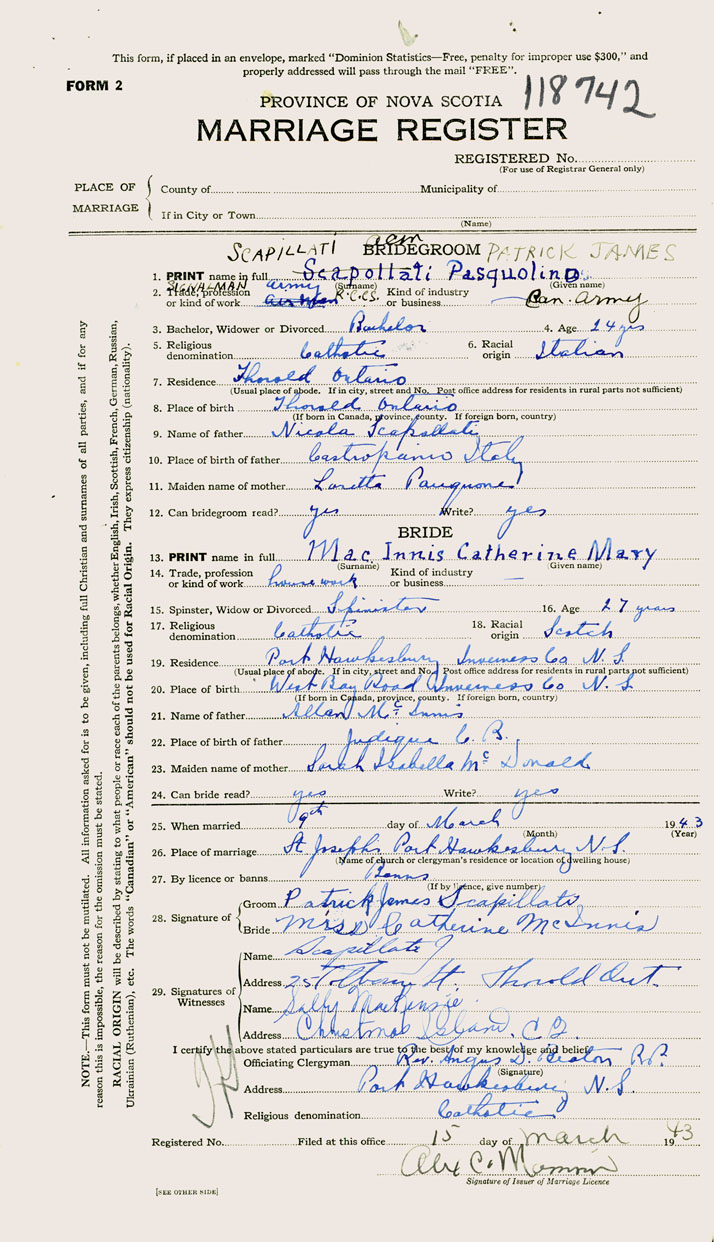 This form, if placed in an envelope, marked "Dominion Statistics—Free, penalty for improper use $300," and
properly addressed will pass through the mail "FREE".
FORM 2
118742
PROVINCE OF NOVA SCOTIA
MARRIAGE REGISTER
REGISTERED No.
(For use of Registrar General only)
PLACE OF MARRIAGE
County of Municipality of
If in City or Town
(Name)
SCAPILLATI acm BRIDEGROOM PATRICK JAMES
1. PRINT name in full Scapollati Pasqualino
(Surname) (Given name)
SIGNALMAN army R.C.C.S.
2. Trade, profession or kind of work Kind of industry or business Can. Army
3. Bachelor, Widower or Divorced Bachelor 4. Age 24 yrs
5. Religious denomination Catholic 6. Racial origin Italian
7. Residence Thorold Ontario
(Usual place of abode. If in city, street and No. Post office address for residents in rural parts not sufficient)
8. Place of birth Thorold Ontario
(If born in Canada, province, county. If foreign born, country)
9. Name of father Nicola Scapillati
10. Place of birth of father Italy
11. Maiden name of mother Loretta
12. Can bridegroom read? yes Write? yes
BRIDE
13. PRINT name in full Mac Innis Catherine Mary
(Surname) (Given name)
14. Trade, profession or kind of work housework Kind of industry or business —
15. Spinster, Widow or Divorced Spinster 16. Age 27 years
17. Religious denomination Catholic 18. Racial origin Scotch
19. Residence Port Hawkesbury Inverness Co N. S.
(Usual place of abode. If in city, street and No. Post office address for residents in rural parts not sufficient)
20. Place of birth West Bay Road Inverness Co N. S.
(If born in Canada, province, county. If foreign born, country)
21. Name of father Allan Mc Innis
22. Place of birth of father Judique C. B.
23. Maiden name of mother Sarah Isabella Mc Donald
24. Can bride read? yes Write? yes
25. When married 9th day of March 1943
(Month) (Year)
26. Place of marriage St Josephs Port Hawkesbury N.S.
(Name of church or clergyman's residence or location of dwelling house)
27. By licence or banns Banns
(If by licence, give number)
28. Signature of
Groom Patrick James Scapillati
Bride Miss Catherine McInnis
29. Signatures of Witnesses
Name Scapillati
Address 25 St. Thorold Ont.
Name Sally MacKenzie
Address Christmas Island, C.B.
I certify the above stated particulars are true to the best of my knowledge and belief.
Officiating Clergyman Rev. Angus D. Beaton P.P.
(Signature)
Address Port Hawkesbury N.S.
Religious denomination Catholic
Registered No. Filed at this office 15 day of March 1943
Signature of Issuer of Marriage Licence
[SEE OTHER SIDE]
NOTE.—This form must not be mutilated. All information asked for is to be given, including full Christian and surnames of all parties, and if for any
reason this is impossible, the reason for the omission must be stated.
RACIAL ORIGIN will be described by stating to what people or race each of the parents belongs, whether English, Irish, Scottish, French, German, Russian,
Ukrainian (Ruthenian), etc. The words "Canadian" or "American" should not be used for Racial Origin. They express citizenship (nationality).